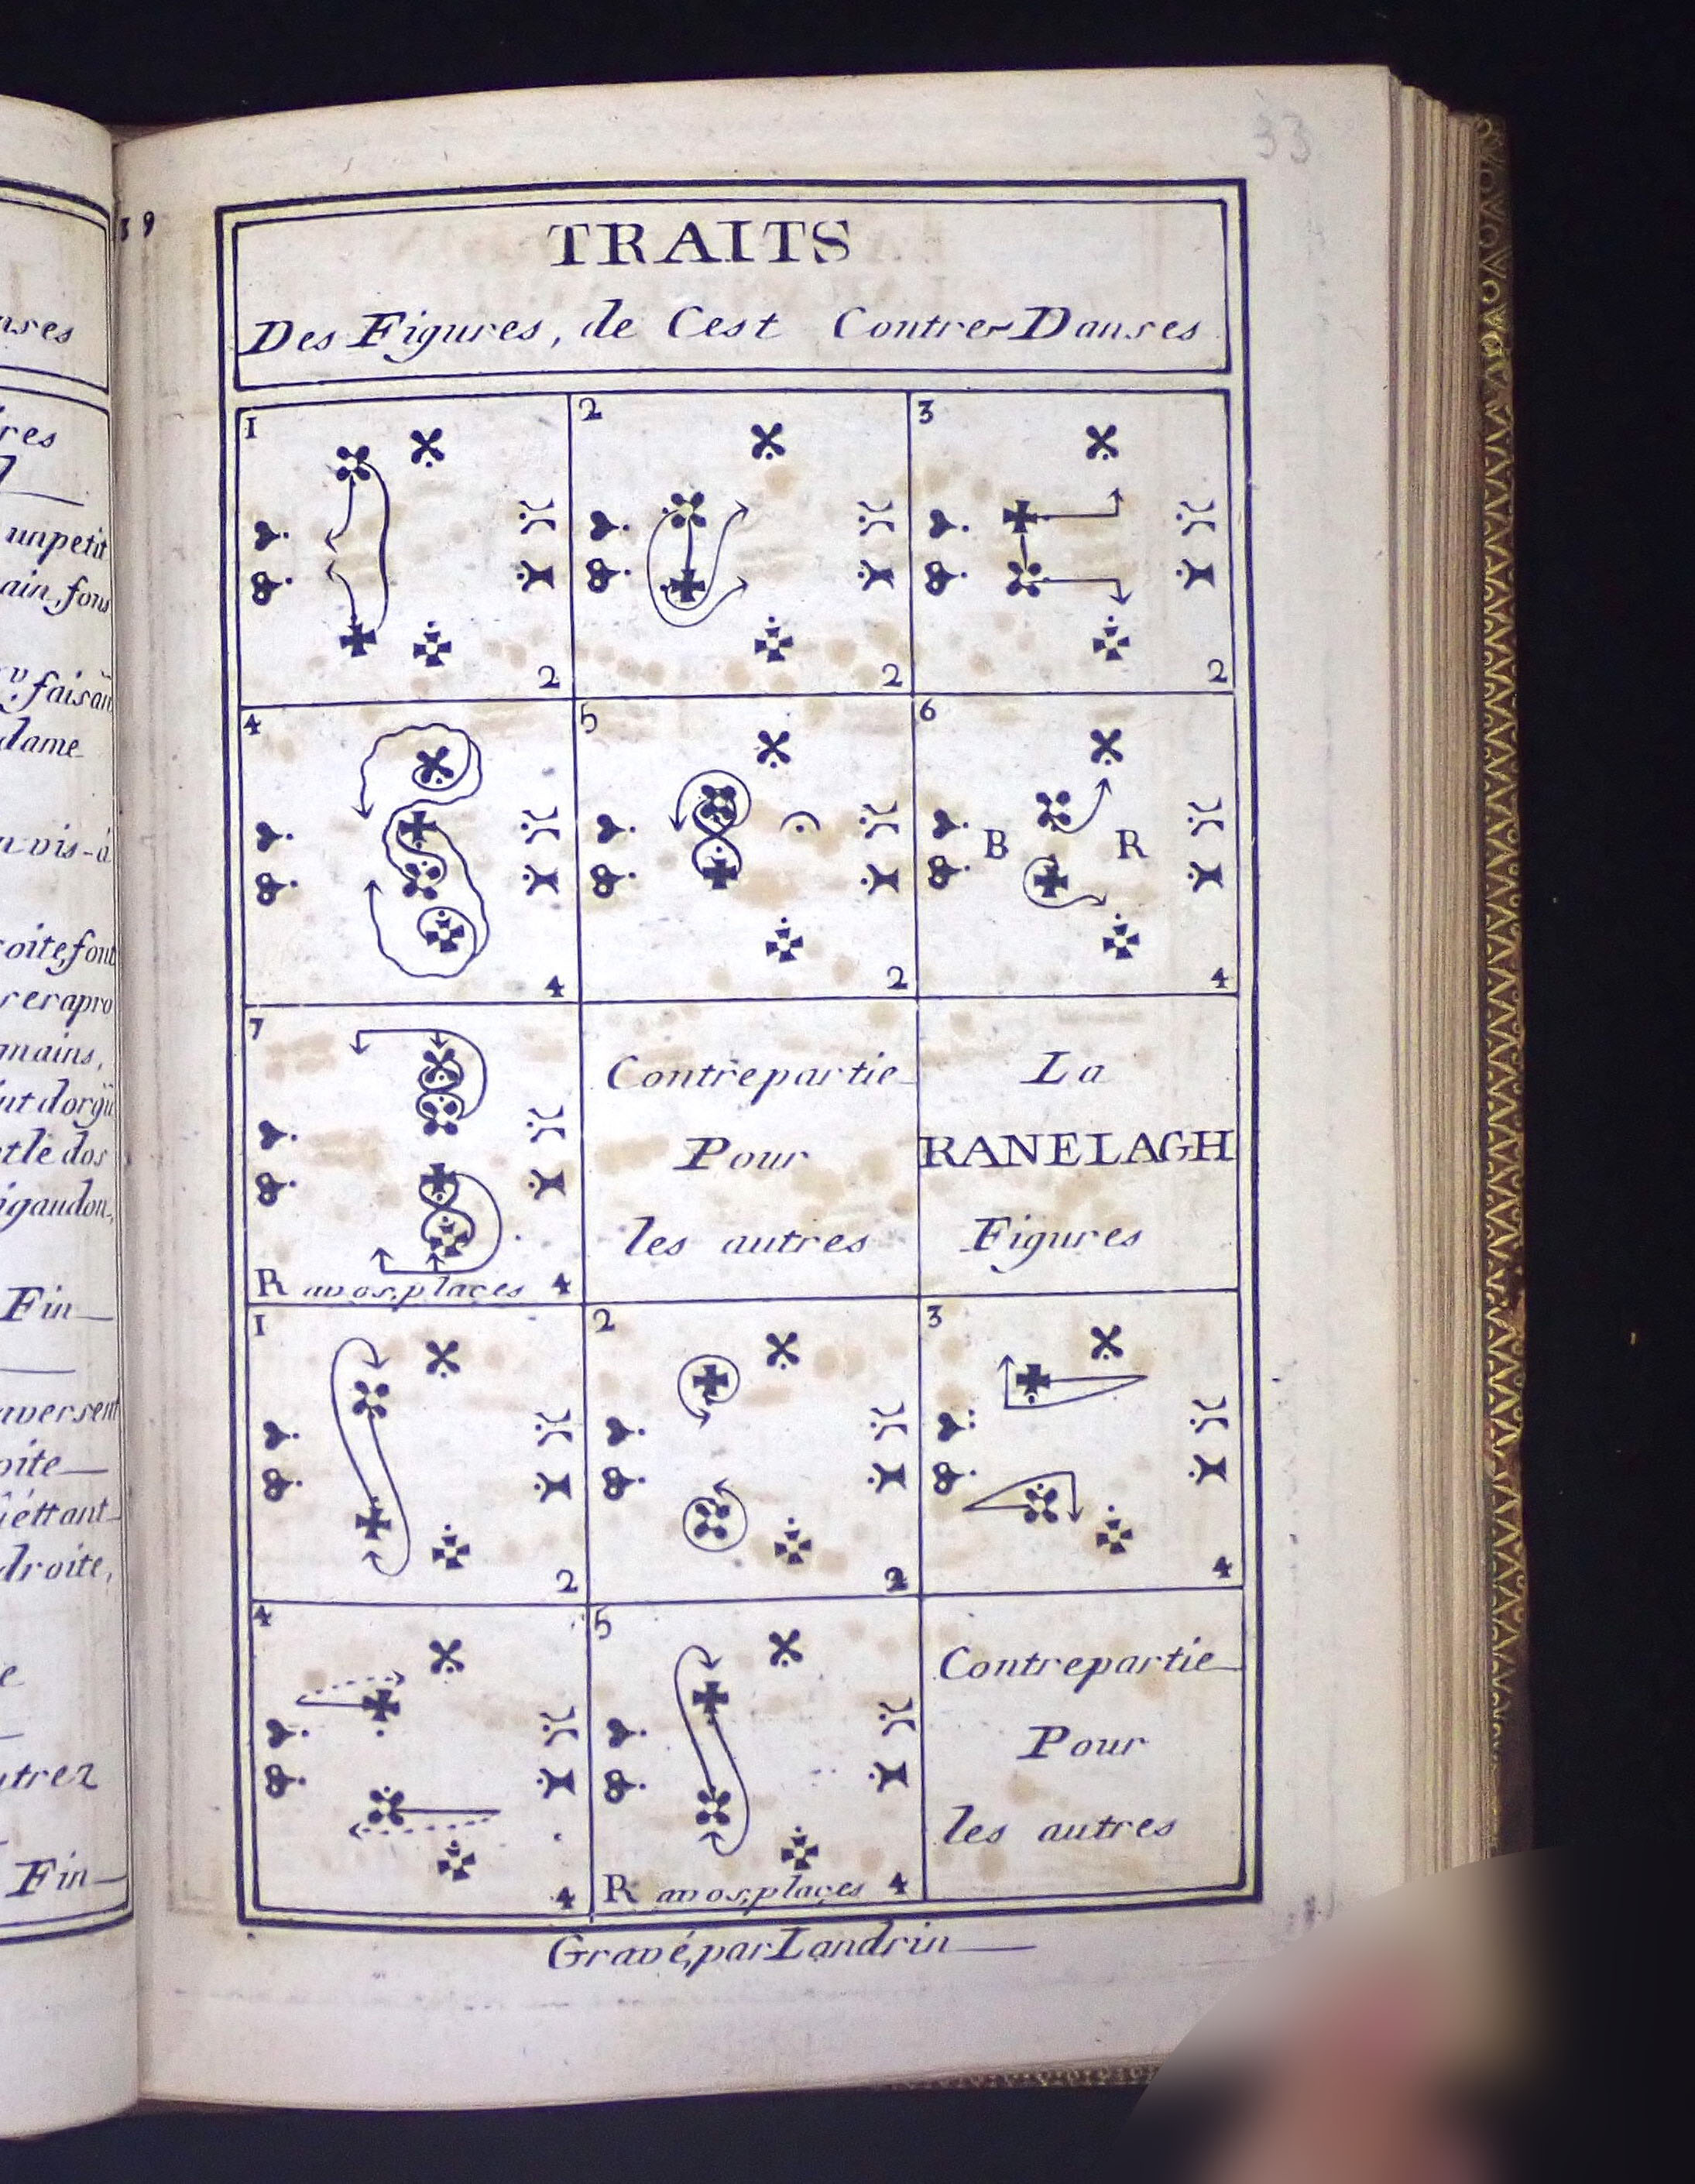 33
39
nses
res
un petit
ain, fons
faisan
dame
vis-à
oite, font
rerapro
mains,
nt dorgü
et le dos
igaudon,
Fin
aversent
oite
iettant
droite,
e
utrez
Fin
TRAITS
Des Figures, de Cest Contre-Danses
1
2
3
2
2
2
4
5
6
B R
4
2
4
7
Contrepartie
Pour
les autres
La
RANELAGH
Figures
R avos, places 4
1
2
3
2
2
4
4
5
4
R avos, places 4
Contrepartie
Pour
les autres
Gravé, par Landrin